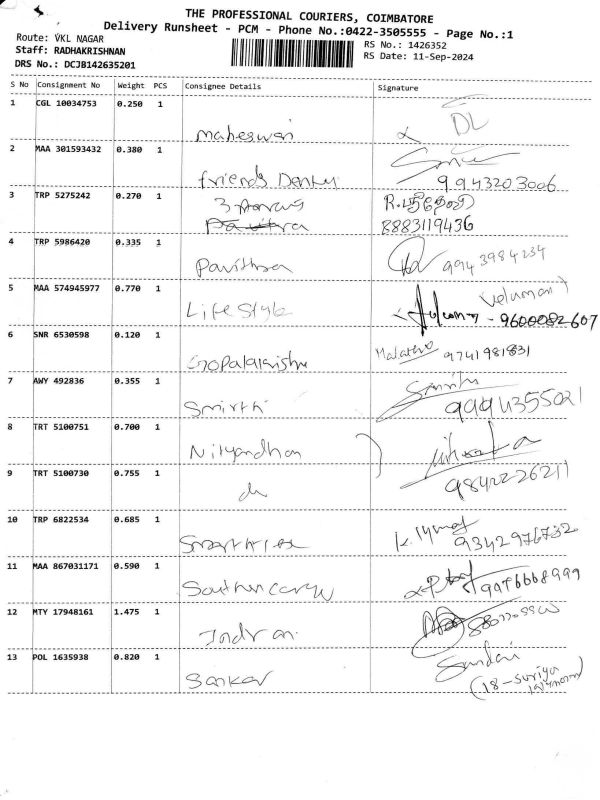 THE PROFESSIONAL COURIERS, COIMBATORE
Delivery Runsheet - PCM - Phone No.:0422-3505555 - Page No.:1
Route: VKL NAGAR
Staff: RADHAKRISHNAN
DRS No.: DCJB142635201
RS No.: 1426352
RS Date: 11-Sep-2024
S No Consignment No Weight PCS Consignee Details Signature
1 CGL 10034753 0.250 1
Maheswari DL
2 MAA 301593432 0.380 1
friends 9943203006
3 TRP 5275242 0.270 1
8883119436
4 TRP 5986420 0.335 1
Pavithra 9943984234
5 MAA 574945977 0.770 1
Life Style Velumani - 9600082607
6 SNR 6530598 0.120 1
Gopalakrishn 9741981831
7 AWY 492836 0.355 1
Smirthi 9994355021
8 TRT 5100751 0.700 1
Nityandhan
9 TRT 5100730 0.755 1
do 9842226211
10 TRP 6822534 0.685 1
9342976732
11 MAA 867031171 0.590 1
9976668999
12 MTY 17948161 1.475 1
Indran
13 POL 1635938 0.820 1
Sankar Sundari
(18-Suriya